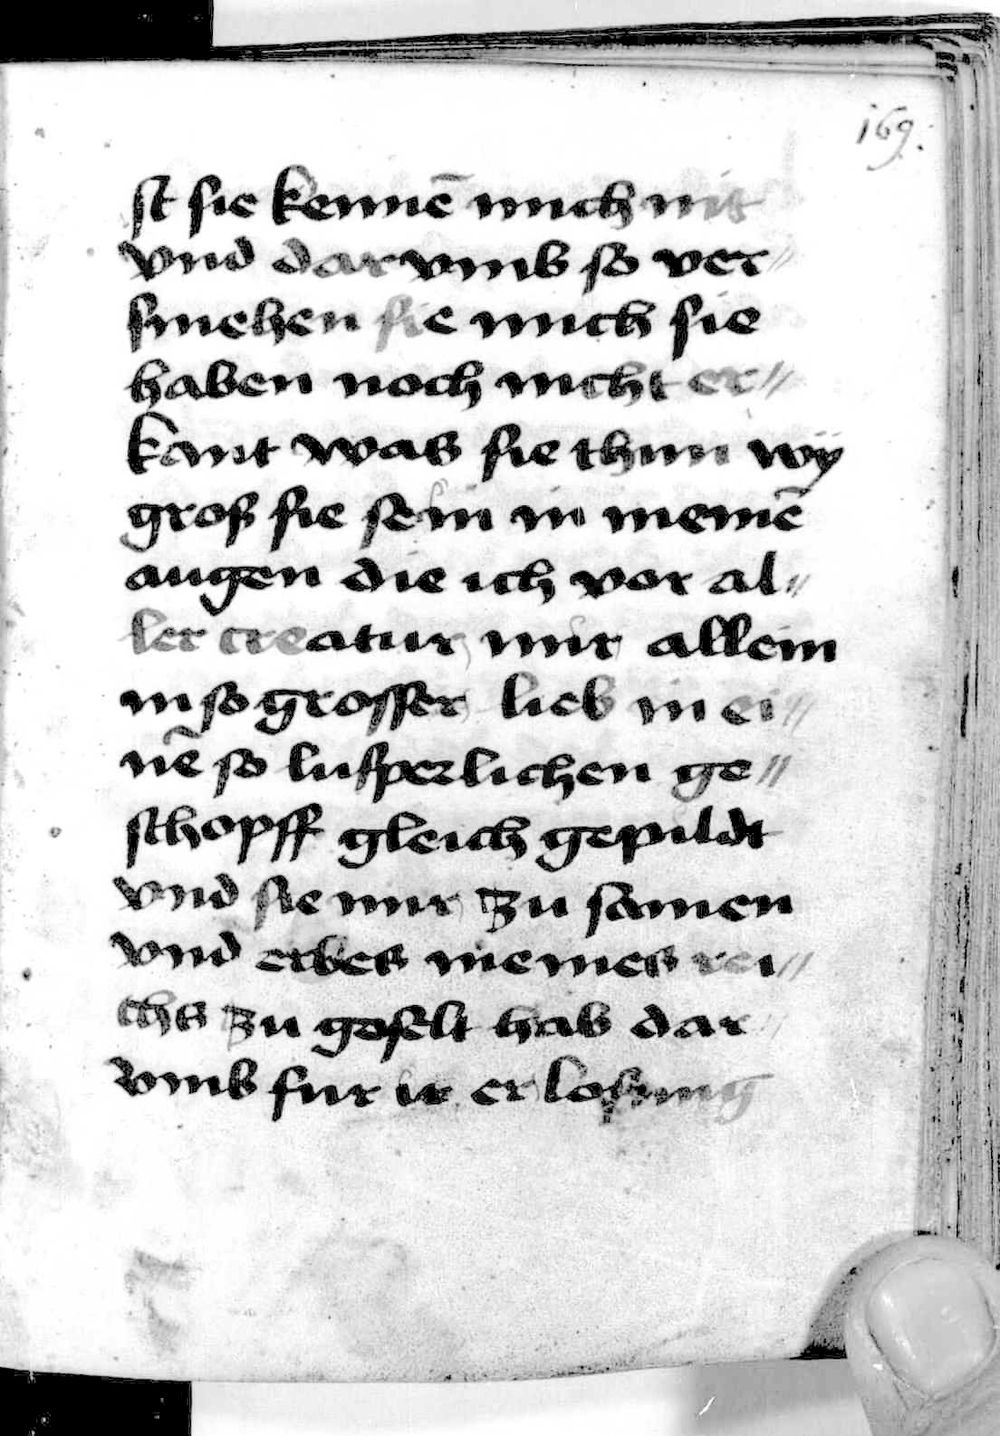 169.
st sie kennē mich nit
vnd dar vmb so ver〃
smehen sie mich sie
haben noch nicht er〃
kant was sie thun wÿ
groß sie sein in meinē
augen die ich vor al〃
ler creatur mir allein
in so grosser lieb in ei〃
nē so lußperlichen ge〃
schopff gleich gepildt
vnd sie mir zu samen
vnd erbes meines rei〃
chs zu geselt hab dar
vmb fur ir er losung